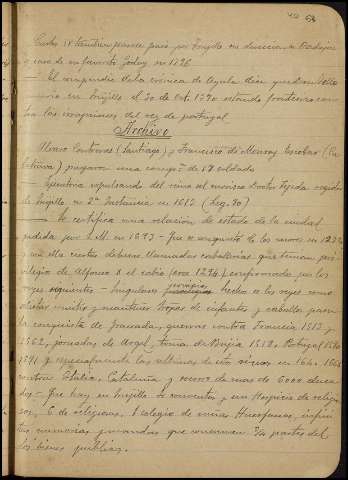 Carlos IV tambien parece paso por Trujillo en direccion a Badajoz
y casa de su favorito Godoy en 1796
— El compendio de la crónica de Ayala dice que
en Trujillo el 30 de Oct. 1390 estando fronteros con-
tra las invasiones del rey de portugal
Archivo
Alonso Contreras (Santiago) y Francisco de Monroy Escobar (Ca-
latrava) pagaron una compª de 58 soldados
— Ejecutoria expulsando del reino al morisco Doctor Tejeda regidor
de Trujillo, en 2ª Instancia en 1613 (Leg. 30)
— Se certifica una relacion de estado de la ciudad
pedida por S.M. en 1693 — Que se conquistó de los moros en 1232
y en ella ciertos deberes llamados caballerias que tenian pri-
vilegio de Alfonso el sabio (era 1294) confirmado por los
reyes siguientes — Singulares servicios hechos a los reyes como
alistar mucho y mantener tropas de infantes y caballos para
la conquista de Granada, guerras contra Francia 1512 y
1562, jornadas de Argel, toma de Bujia 1510, Portugal 1580
1591 y especialmente las ultimas de otro reino en 1640. 1665
contra Italia, Cataluña y socorro de mas de 6000 duca-
dos — Que hay en Trujillo 4 conventos y un Hospicio de religio-
sos, 6 de religiosas, 1 colegio de niñas Huerfanas, infini-
tas memorias y mandas que consumen 3/4 partes del
los bienes publicos.